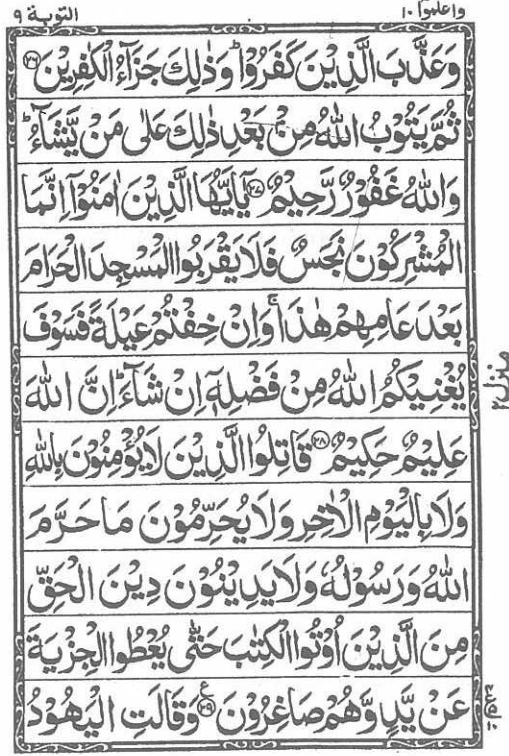 واعلموا ١٠
التوبة ٩
وَعَذَّبَ الَّذِيْنَ كَفَرُوْا ؕ وَذٰلِكَ جَزَآءُ الْكٰفِرِيْنَ ۝۲۶
ثُمَّ يَتُوْبُ اللّٰهُ مِنْۢ بَعْدِ ذٰلِكَ عَلٰى مَنْ يَّشَآءُ ؕ
وَاللّٰهُ غَفُوْرٌ رَّحِيْمٌ ۝۲۷ يٰۤاَيُّهَا الَّذِيْنَ اٰمَنُوْۤا اِنَّمَا
الْمُشْرِكُوْنَ نَجَسٌ فَلَا يَقْرَبُوا الْمَسْجِدَ الْحَرَامَ
بَعْدَ عَامِهِمْ هٰذَا ۚ وَاِنْ خِفْتُمْ عَيْلَةً فَسَوْفَ
يُغْنِيْكُمُ اللّٰهُ مِنْ فَضْلِهٖۤ اِنْ شَآءَ ؕ اِنَّ اللّٰهَ
عَلِيْمٌ حَكِيْمٌ ۝۲۸ قَاتِلُوا الَّذِيْنَ لَا يُؤْمِنُوْنَ بِاللّٰهِ
وَلَا بِالْيَوْمِ الْاٰخِرِ وَلَا يُحَرِّمُوْنَ مَا حَرَّمَ
اللّٰهُ وَرَسُوْلُهٗ وَلَا يَدِيْنُوْنَ دِيْنَ الْحَقِّ
مِنَ الَّذِيْنَ اُوْتُوا الْكِتٰبَ حَتّٰى يُعْطُوا الْجِزْيَةَ
عَنْ يَّدٍ وَّهُمْ صَاغِرُوْنَ ۝۲۹ ع وَقَالَتِ الْيَهُوْدُ
منزل ٢